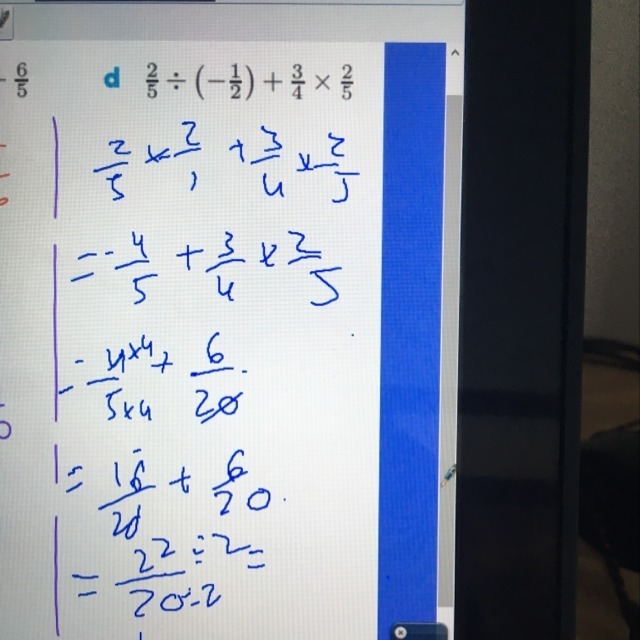 6/5 d 2/5 ÷ (−1/2) + 3/4 × 2/5
2/5 × −2/1 + 3/4 × 2/5
= −4/5 + 3/4 × 2/5
= −4×4/5×4 + 6/20
= 16/20 + 6/20
= 22/20 ÷2 =
÷2